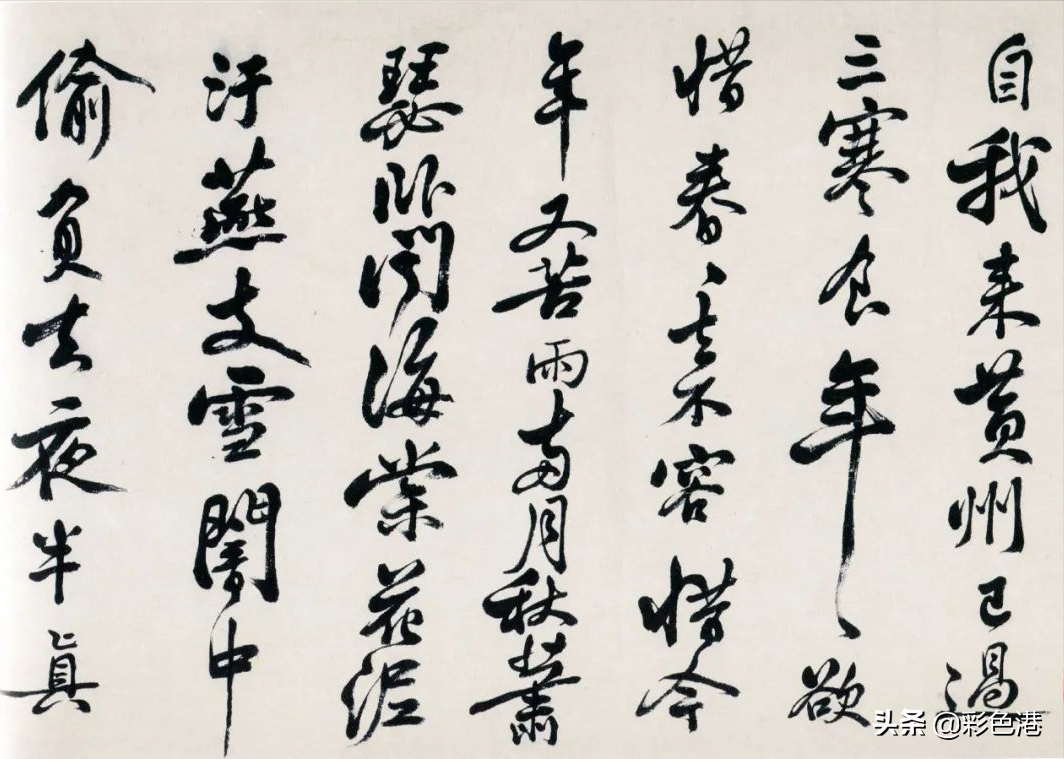 自我来黄州已過
三寒食年〻欲
惜春〻去不容惜今
年又苦雨兩月秋蕭
瑟卧聞海棠花泥
汙燕支雪闇中
偷負去夜半真
头条 @彩色港